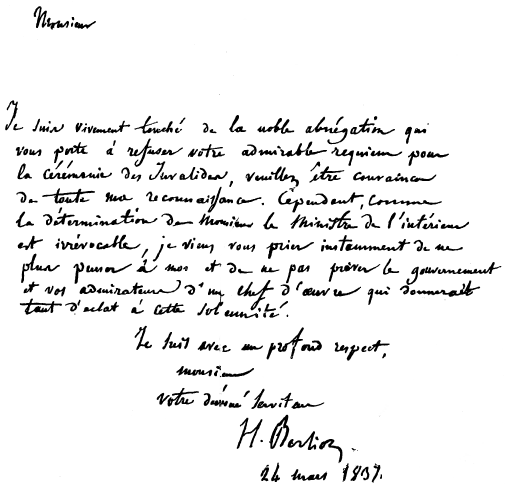 Monsieur
Je suis vivement touché de la noble abnégation qui
vous porte à refuser votre admirable requiem pour
la cérémonie des Invalides, veuillez être convaincu
de toute ma reconnaissance. Cependant, comme
la détermination de Monsieur le Ministre de l'intérieur
est irrévocable, je viens vous prier instamment de ne
plus penser à moi et de ne pas priver le gouvernement
et vos admirateurs d'un chef d'œuvre qui donnerait
tant d'éclat à cette solennité.
Je suis avec un profond respect,
monsieur
votre dévoué serviteur
H. Berlioz
24 mars 1837.